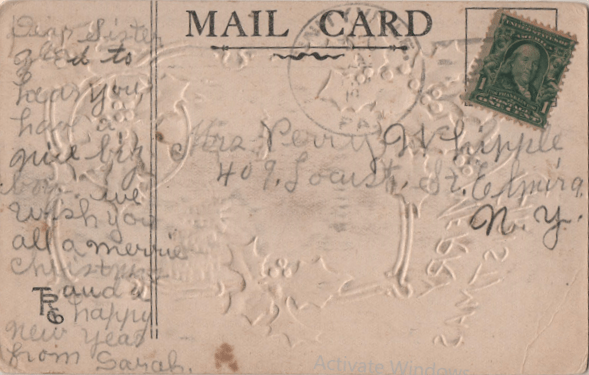 MAIL CARD
Dear Sister
glad to
hear you
have a
nice big
boy. we
wish you
all a merrie
christmas
and a
happy
new year
from Sarah.
Mrs Perry Whipple
409. Locust. St. Elmira
N. Y.
PA
1 1
Activate Windows